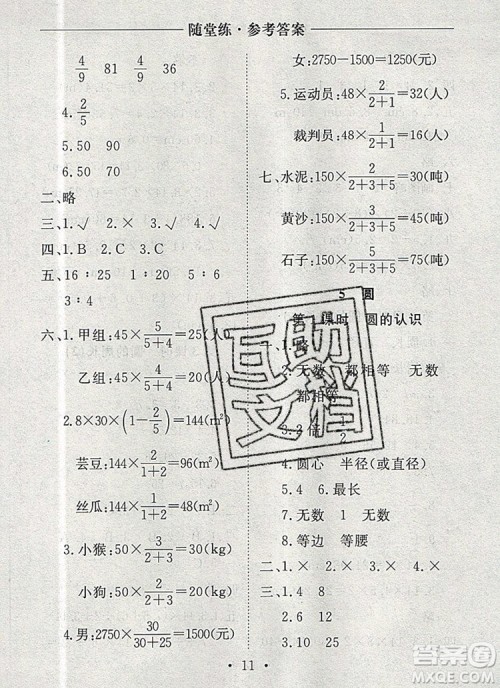 随堂练·参考答案
4/9 81 4/9 36
4. 2/5
5. 50 90
6. 50 70
二、略
三、1.√ 2.× 3.√ 4.√
四、1.B 2.C 3.C
五、16∶25 1∶20 5∶6
3∶4
六、1.甲组:45×5/(5+4)=25(人)
乙组:45×4/(5+4)=20(人)
2.8×30×(1-2/5)=144(m²)
芸豆:144×2/(2+1)=96(m²)
丝瓜:144×1/(2+1)=48(m²)
3.小猴:50×3/(2+3)=30(kg)
小狗:50×2/(2+3)=20(kg)
4.男:2750×30/(30+25)=1500(元)
女:2750-1500=1250(元)
5.运动员:48×2/(2+1)=32(人)
裁判员:48×1/(2+1)=16(人)
七、水泥:150×2/(2+3+5)=30(吨)
黄沙:150×3/(2+3+5)=45(吨)
石子:150×5/(2+3+5)=75(吨)
5 圆
第一课时 圆的认识
一、1.略
2.无数 都相等 无数
都相等
3.2倍 1/2
4.圆心 半径(或直径)
5.4 6.最长
7.无数 1 无数
8.等边 等腰
二、1.× 2.× 3.× 4.×
三、1.4 8
2.6 12
3.10 25
·11·
互助文档
作业帮答案
MXQE.COM